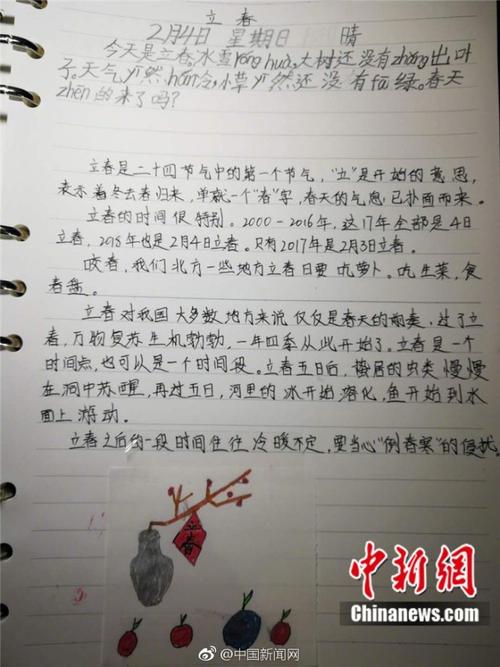 立春
2月4日 星期日 晴
今天是立春,冰雪rónghuà。大树还没有zhǎng出叶
子。天气yī然hán冷,小草yī然还没有fā绿。春天
zhēn的来了吗?
立春是二十四节气中的第一个节气,“立”是开始的意思,
表示着冬去春归来,单就一个“春”字,春天的气息已扑面而来。
立春的时间很特别。2000-2016年,这17年全部是4日
立春,2018年也是2月4日立春。只有2017年是2月3日立春。
咬春,我们北方一些地方立春日要吃萝卜。吃生菜,食
春盘。
立春对我国大多数地方来说仅仅是春天的前奏,过了立
春,万物复苏生机勃勃,一年四季从此开始了。立春是一个
时间点,也可以是一个时间段。立春五日后,蛰居的虫类慢慢
在洞中苏醒,再过五日,河里的冰开始溶化,鱼开始到水
面上游动。
立春之后的一段时间往往冷暖不定,要当心“倒春寒”的侵扰。
立春
中新网
Chinanews.com
@中国新闻网